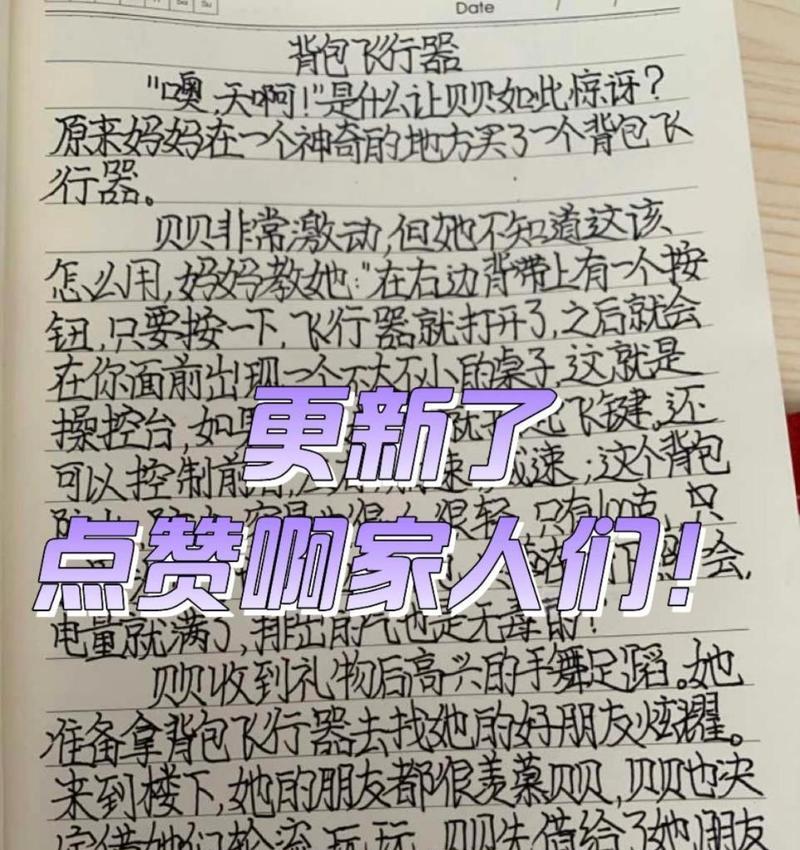 Date
Sa Su
背包飞行器
"噢,天啊!"是什么让贝贝如此惊讶?
原来妈妈在一个神奇的地方买了一个背包飞
行器。
贝贝非常激动,但她不知道这该
怎么用,妈妈教她:"在右边背带上有一个按
钮,只要按一下,飞行器就打开了,之后就会
在你面前出现一个不大不小的桌子,这就是
操控台,如果 飞键。还
更新了
可以控制前 速 减速;这个背包
很轻,只有100克,只
点赞啊家人们!
会,
电量就满了,排出的气也是无毒的!
贝贝收到礼物后高兴的手舞足蹈。她
准备拿背包飞行器去找她的好朋友炫耀。
来到楼下,她的朋友都很羡慕贝贝,贝贝也决
定借她们轮流玩玩,贝贝先借给了她朋友